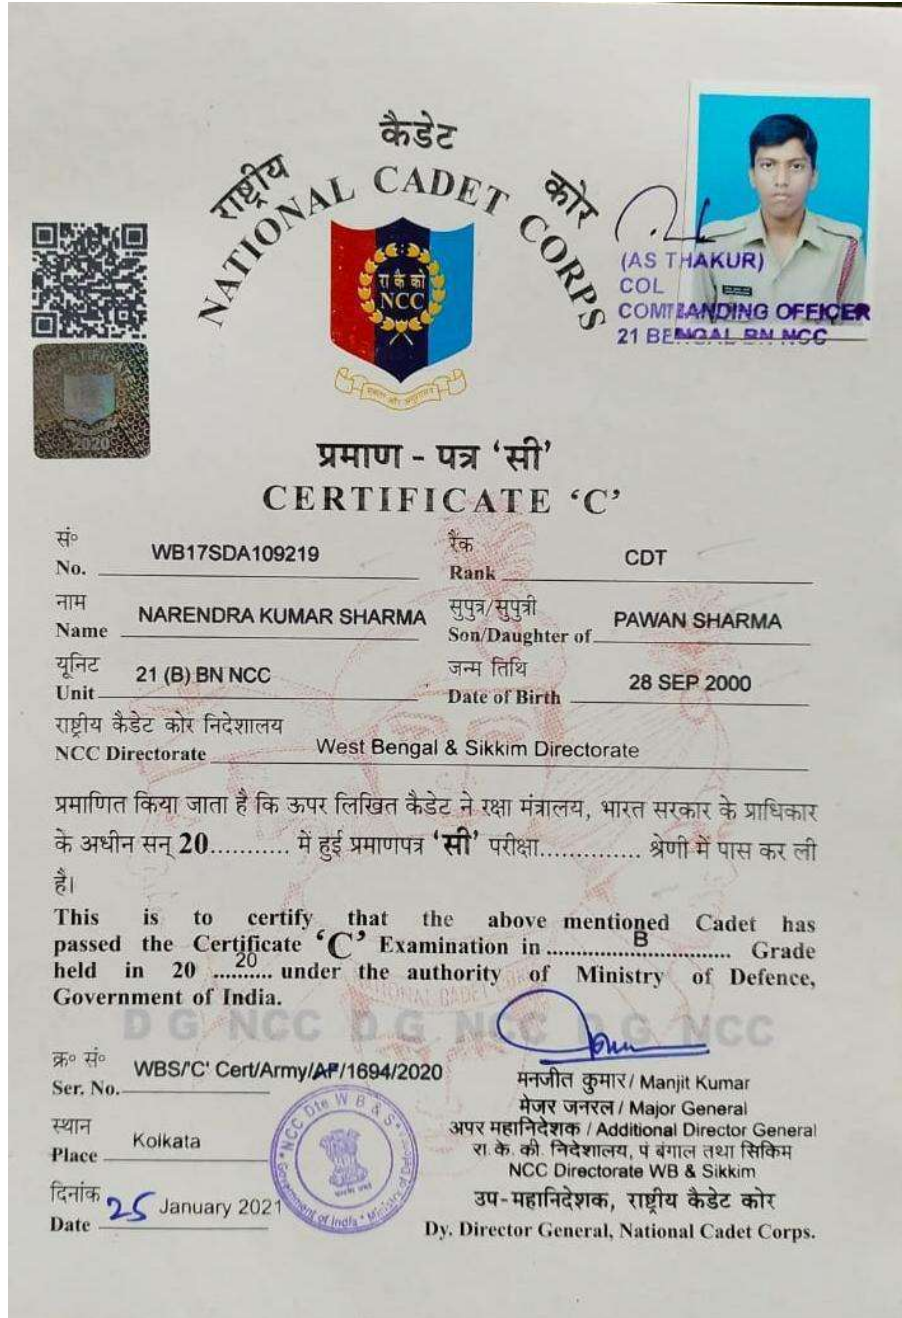 राष्ट्रीय कैडेट कोर
NATIONAL CADET CORPS
रा कै को
NCC
एकता और अनुशासन
(AS THAKUR)
COL
COMMANDING OFFICER
21 BENGAL BN NCC
2020
प्रमाण - पत्र ‘सी’
CERTIFICATE ‘C’
सं०
No. WB17SDA109219
रैंक
Rank CDT
नाम
Name NARENDRA KUMAR SHARMA
सुपुत्र/सुपुत्री
Son/Daughter of PAWAN SHARMA
यूनिट
Unit 21 (B) BN NCC
जन्म तिथि
Date of Birth 28 SEP 2000
राष्ट्रीय कैडेट कोर निदेशालय
NCC Directorate West Bengal & Sikkim Directorate
प्रमाणित किया जाता है कि ऊपर लिखित कैडेट ने रक्षा मंत्रालय, भारत सरकार के प्राधिकार
के अधीन सन् 20........... में हुई प्रमाणपत्र ‘सी’ परीक्षा.............. श्रेणी में पास कर ली
है।
This is to certify that the above mentioned Cadet has
passed the Certificate ‘C’ Examination in ........B........ Grade
held in 20 ....20.... under the authority of Ministry of Defence,
Government of India.
D G NCC D G NCC D G NCC
क्र० सं०
Ser. No. WBS/'C' Cert/Army/AF/1694/2020
स्थान
Place Kolkata
दिनांक
Date 25 January 2021
NCC Dte W B & S
Government of India * Ministry of Defence
मनजीत कुमार/ Manjit Kumar
मेजर जनरल / Major General
अपर महानिदेशक / Additional Director General
रा. के. की. निदेशालय, पं बंगाल तथा सिकिम
NCC Directorate WB & Sikkim
उप-महानिदेशक, राष्ट्रीय कैडेट कोर
Dy. Director General, National Cadet Corps.